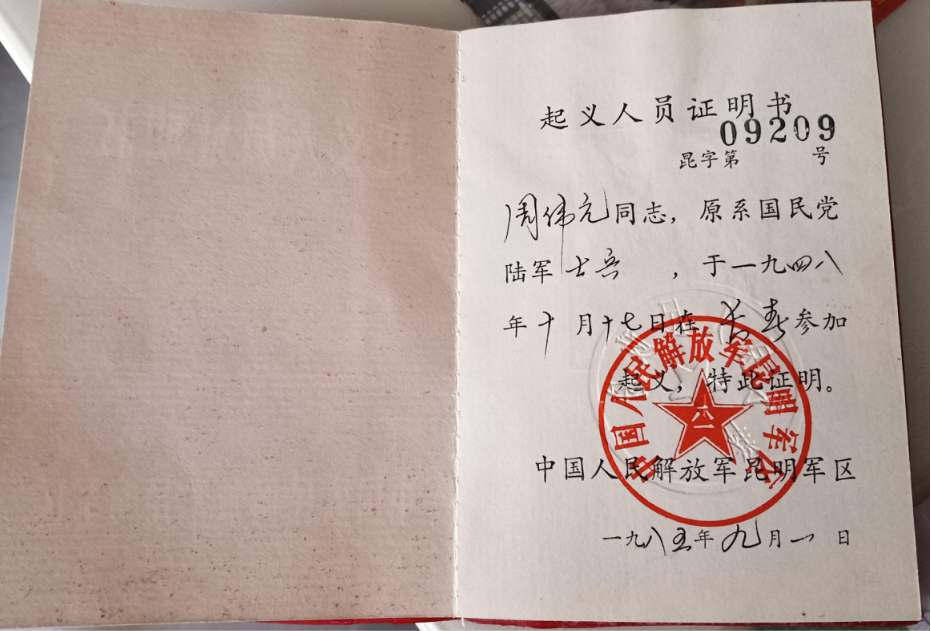 起义人员证明书
09209
昆字第 号
周伟元同志，原系国民党
陆军士兵，于一九四八
年十月十七日在长春参加
起义，特此证明。
中国人民解放军昆明军区
中国人民解放军昆明军区
八一
一九八五年九月一日